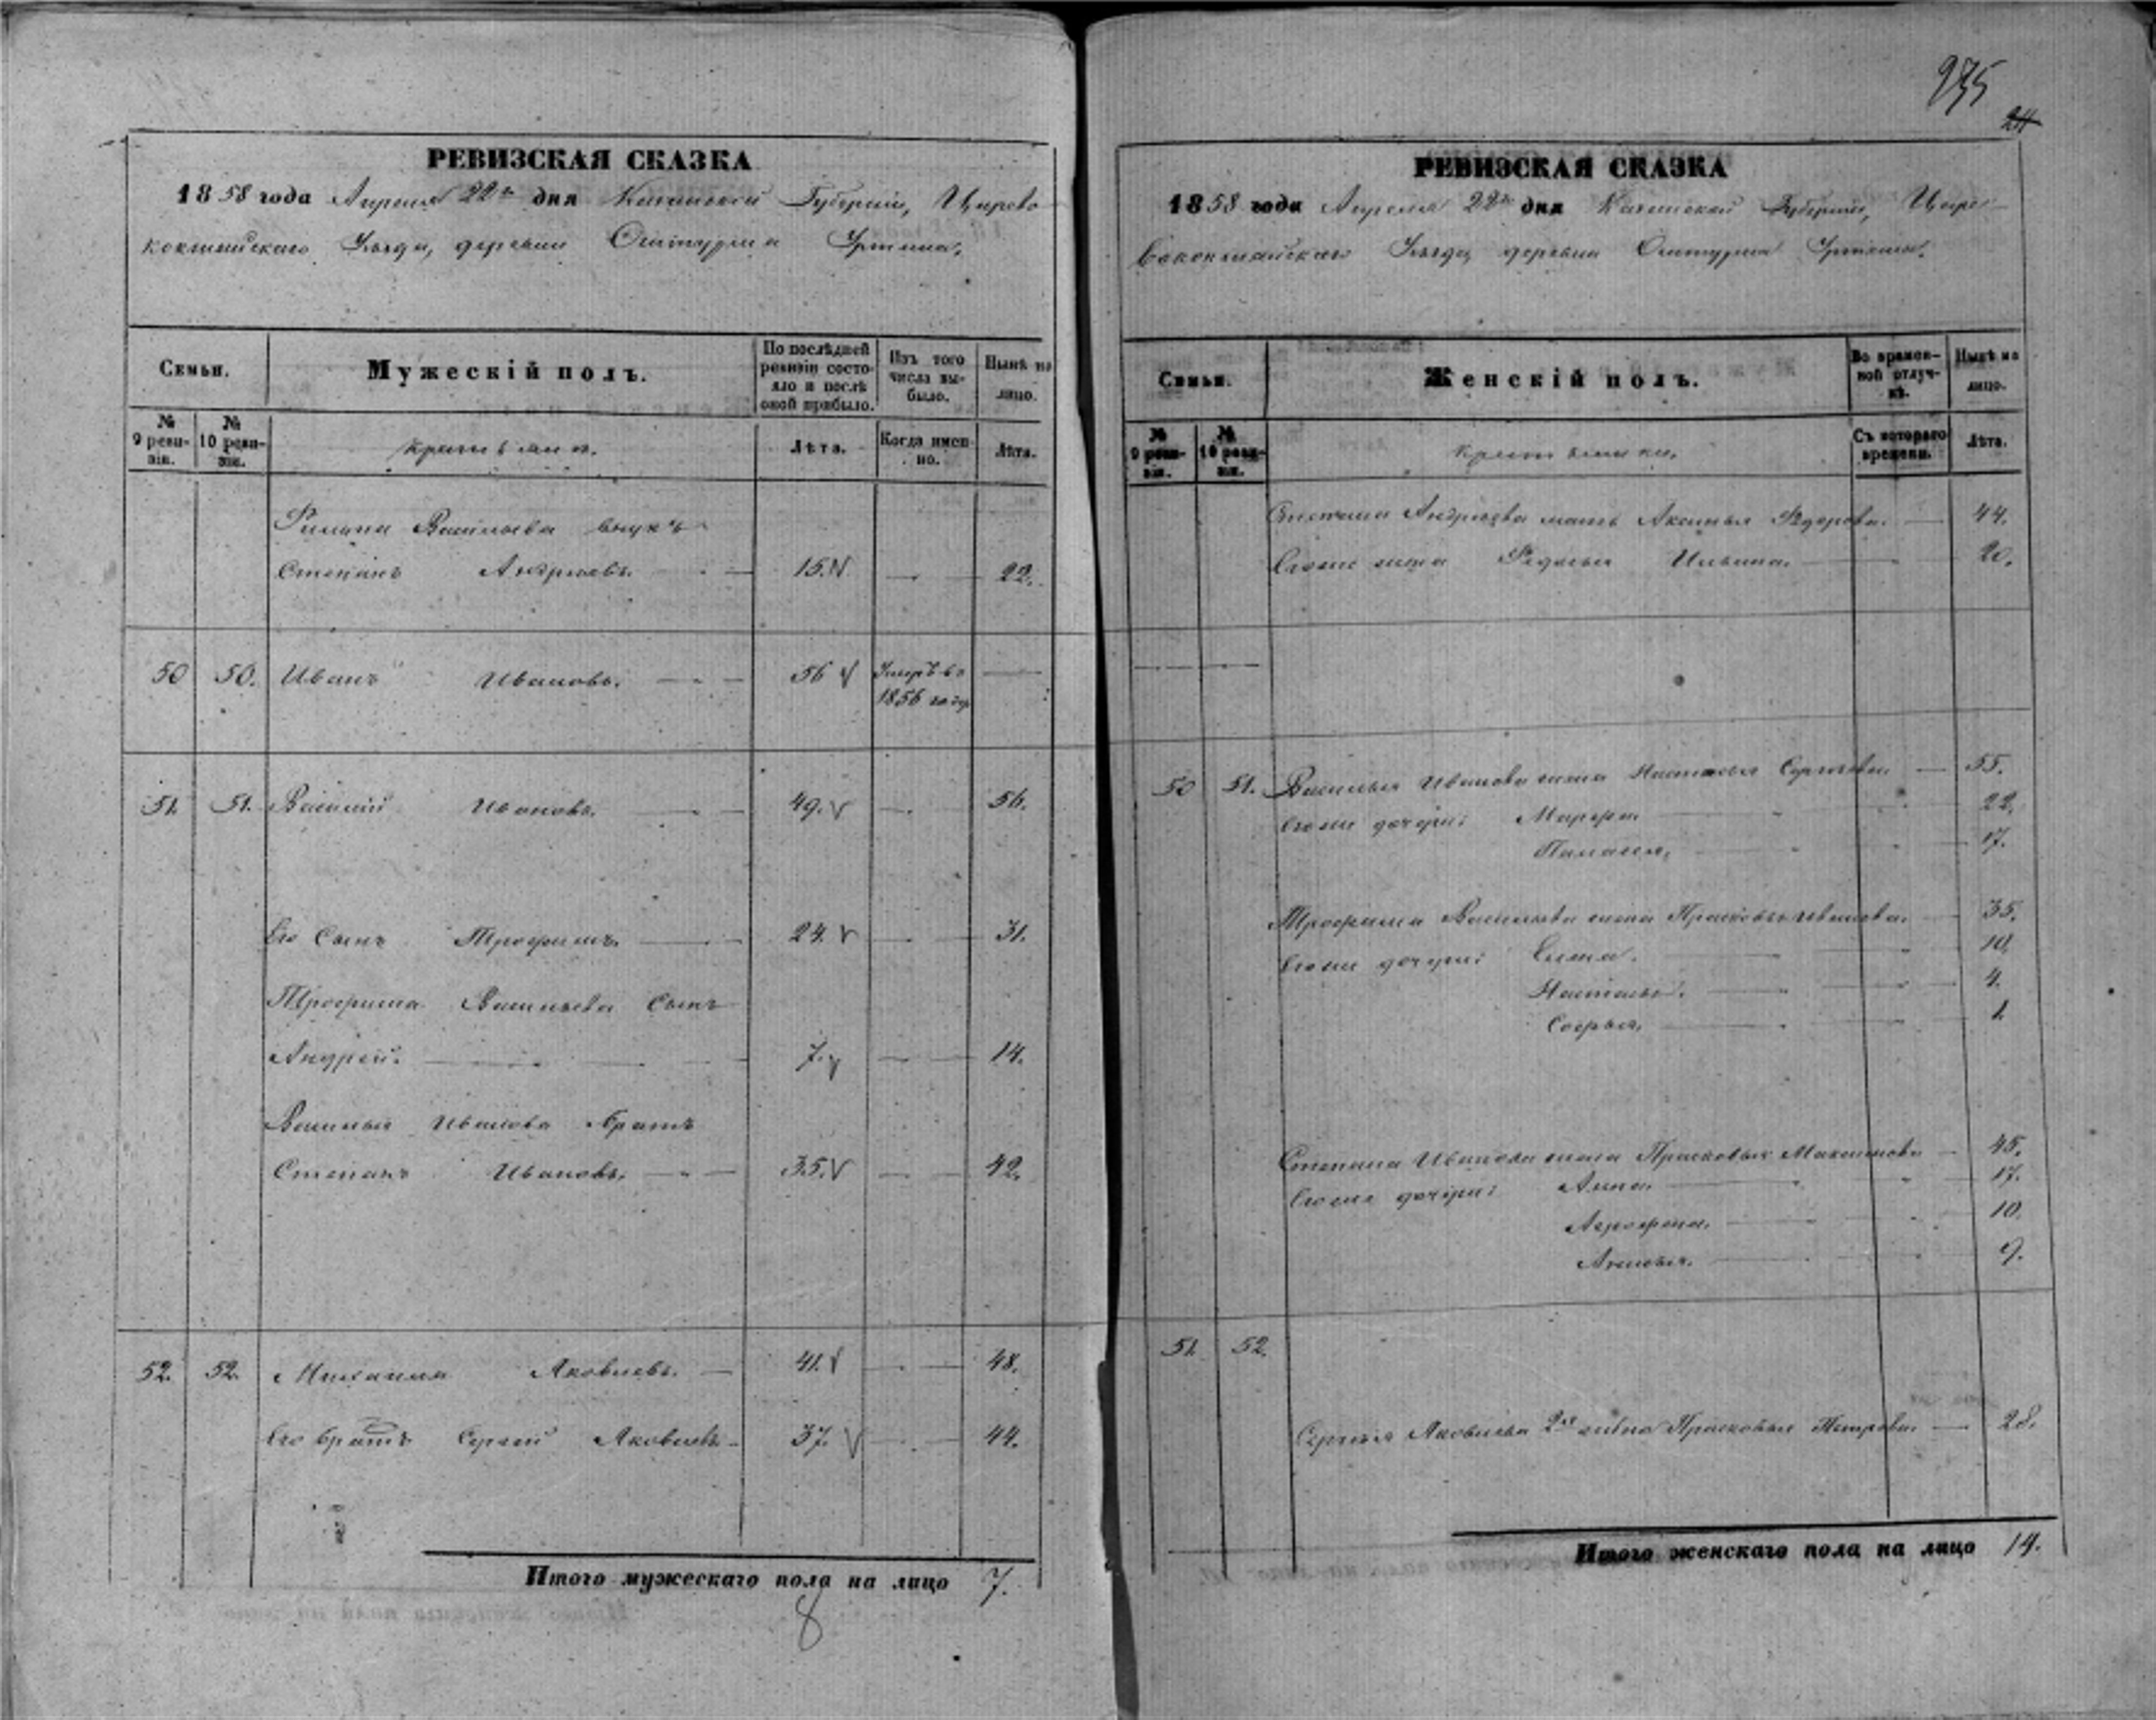 РЕВИЗСКАЯ СКАЗКА
1858 года Апреля 22го дня Казанской Губернiи, Царево
кокшайскаго Уѣзда, деревни
Семьи.
Мужескiй полъ.
По послѣдней ревизiи состояло и послѣ оной прибыло.
Изъ того числа выбыло.
Нынѣ на лицо.
№ 9 ревизiи.
№ 10 ревизiи.
Крестьяне.
Лѣта.
Когда именно.
Лѣта.
Филипа Васильева внукъ
Степанъ Андреевъ. 15. 22.
50 50. Иванъ Ивановъ. 56 Умеръ въ
1856 году
51. 51. Василiй Ивановъ. 49. 56.
Его Сынъ Трофимъ. 24. 31.
Трофима Васильева Сынъ
Андрей. 7. 14.
Василья Иванова братъ
Степанъ Ивановъ. 35. 42.
52. 52. Михаила Яковлевъ. 41. 48.
Его братъ Сергей Яковлевъ 37. 44.
Итого мужескаго пола на лицо 7.
8
235
24
РЕВИЗСКАЯ СКАЗКА
1858 года Апреля 22го дня Казанской Губернiи, Царе
вококшайскаго Уѣзда, деревни
Семьи.
Женскiй полъ.
Во временной отлучкѣ.
Нынѣ на лицо.
№ 9 ревизiи.
№ 10 ревизiи.
Крестьянки.
Съ котораго времени.
Лѣта.
Степана Андреева мать Аксинья Федорова. 44.
Его же жена Федосья Ильина. 20.
50 51. Василья Иванова жена Настасья Сергеева 55.
Его же дочери: Марфа 22.
Палагея, 17.
Трофима Васильева жена Прасковья Иванова. 35.
Его же дочери: 10.
Настасья. 4.
Софья. 1.
Степана Иванова жена Прасковья Максимова 45.
Его же дочери: Анна. 17.
Агрофена. 10.
9.
51. 52.
Сергея Яковлева 2я жена Прасковья Петрова 28.
Итого женскаго пола на лицо 14.